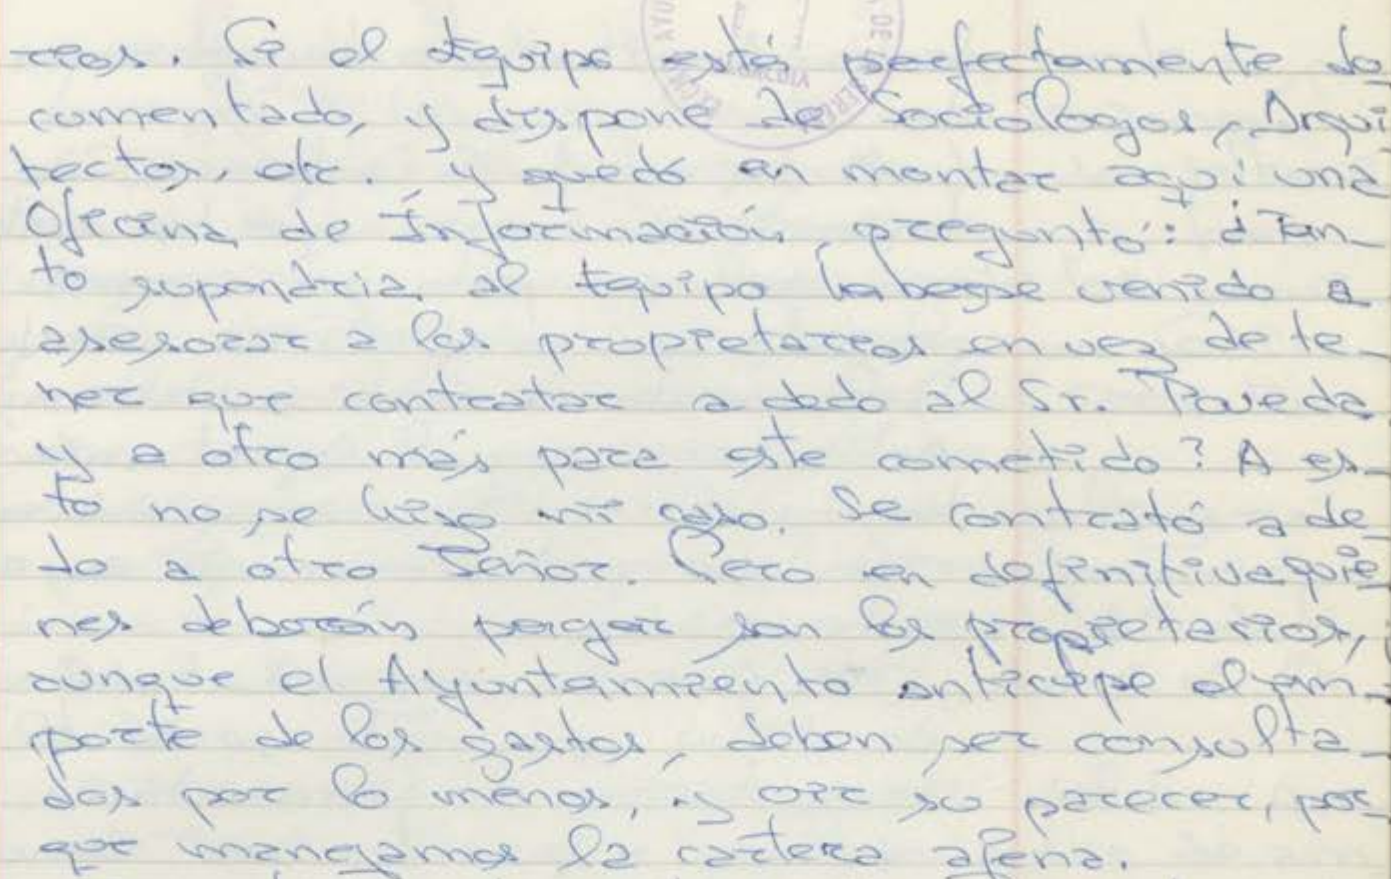 rios. Si el Equipo está perfectamente do
cumentado, y dispone de Sociólogos, Arqui
tectos, etc. y quedó en montar aquí una
Oficina de Información, pregunto: ¿Tan-
to supondria al Equipo haberse venido a
asesorar a los propietarios en vez de te-
ner que contratar a dedo al Sr. Poveda
y a otro más para este cometido? A es-
to no se hizo ni caso. Se contrató a de
do a otro Señor. Pero en definitiva quie
nes deberán pagar son los propietarios,
aunque el Ayuntamiento anticipe el im-
porte de los gastos, deben ser consulta-
dos por lo menos, y oir su parecer, por
que manejamos la cartera ajena.